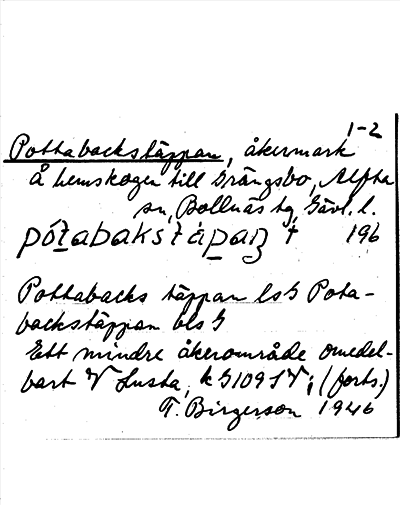 1-2
Pottabackstäppan, åkermark
å hemskogen till Grängsbo, Alfta
sn, Bollnäs tg, Gävl. l.
pótabakstäpaṇ † 196
Pottabacks täppan ls G Pota-
backstäppan bls G
Ett mindre åkerområde omedel-
bart V Susta, k G 109 S V; (forts.)
T. Birgerson 1946